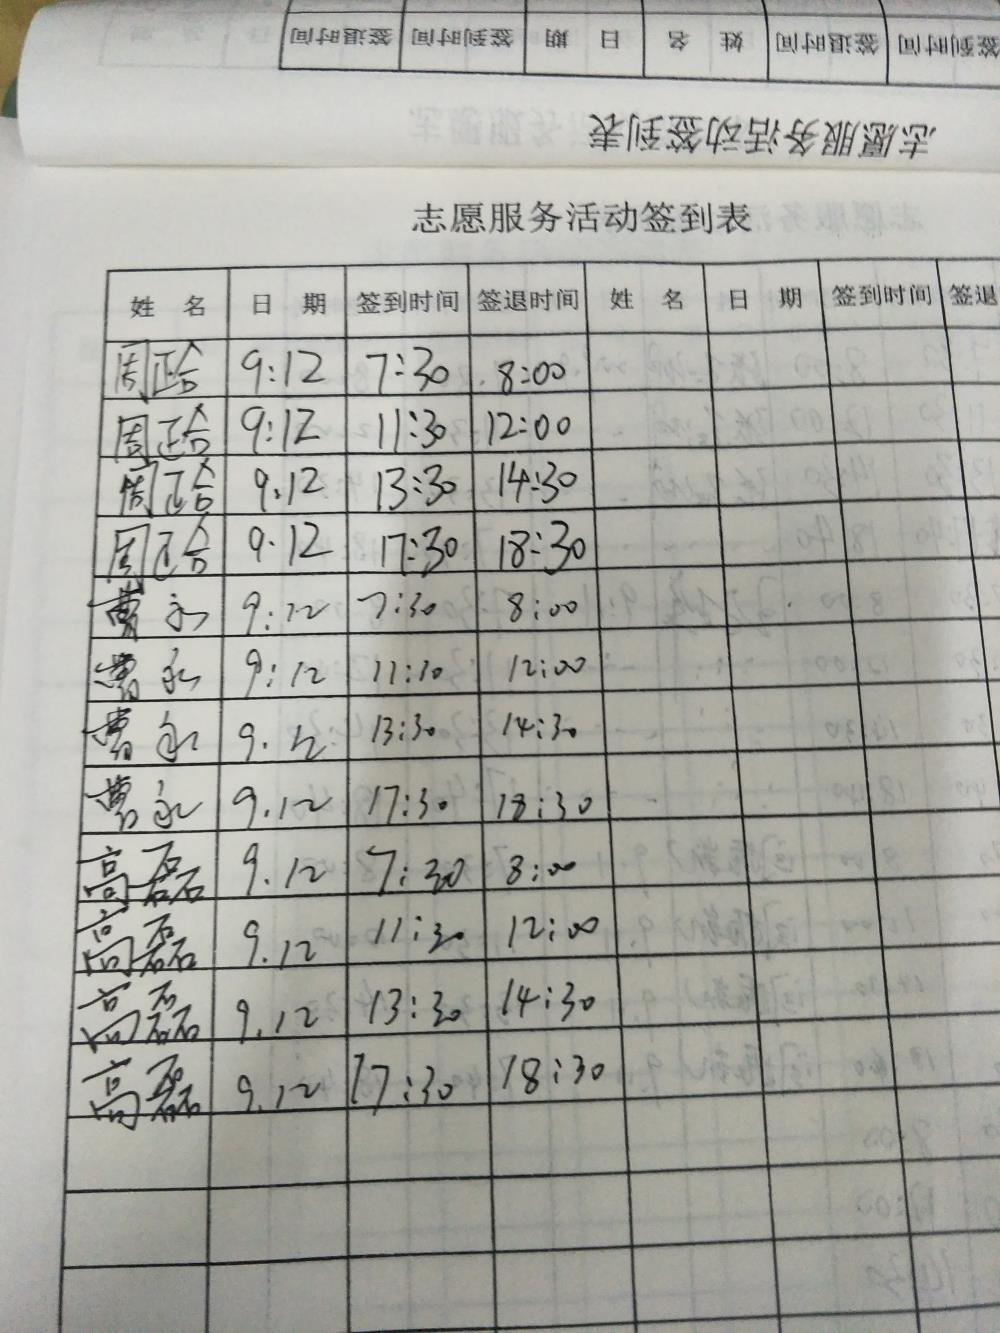 签到时间 签退时间 姓 名 日 期 签到时间 签退时间
志愿服务活动签到表
志愿服务活动签到表
姓 名 日 期 签到时间 签退时间 姓 名 日 期 签到时间 签退
周 9:12 7:30 8:00
周 9:12 11:30 12:00
周 9.12 13:30 14:30
周 9.12 17:30 18:30
曹永 9:12 7:30 8:00
曹永 9:12 11:10 12:00
曹永 9.12 13:30 14:30
曹永 9.12 17:30 18:30
高磊 9.12 7:30 8:00
高磊 9.12 11:30 12:00
高磊 9.12 13:30 14:30
高磊 9.12 17:30 18:30